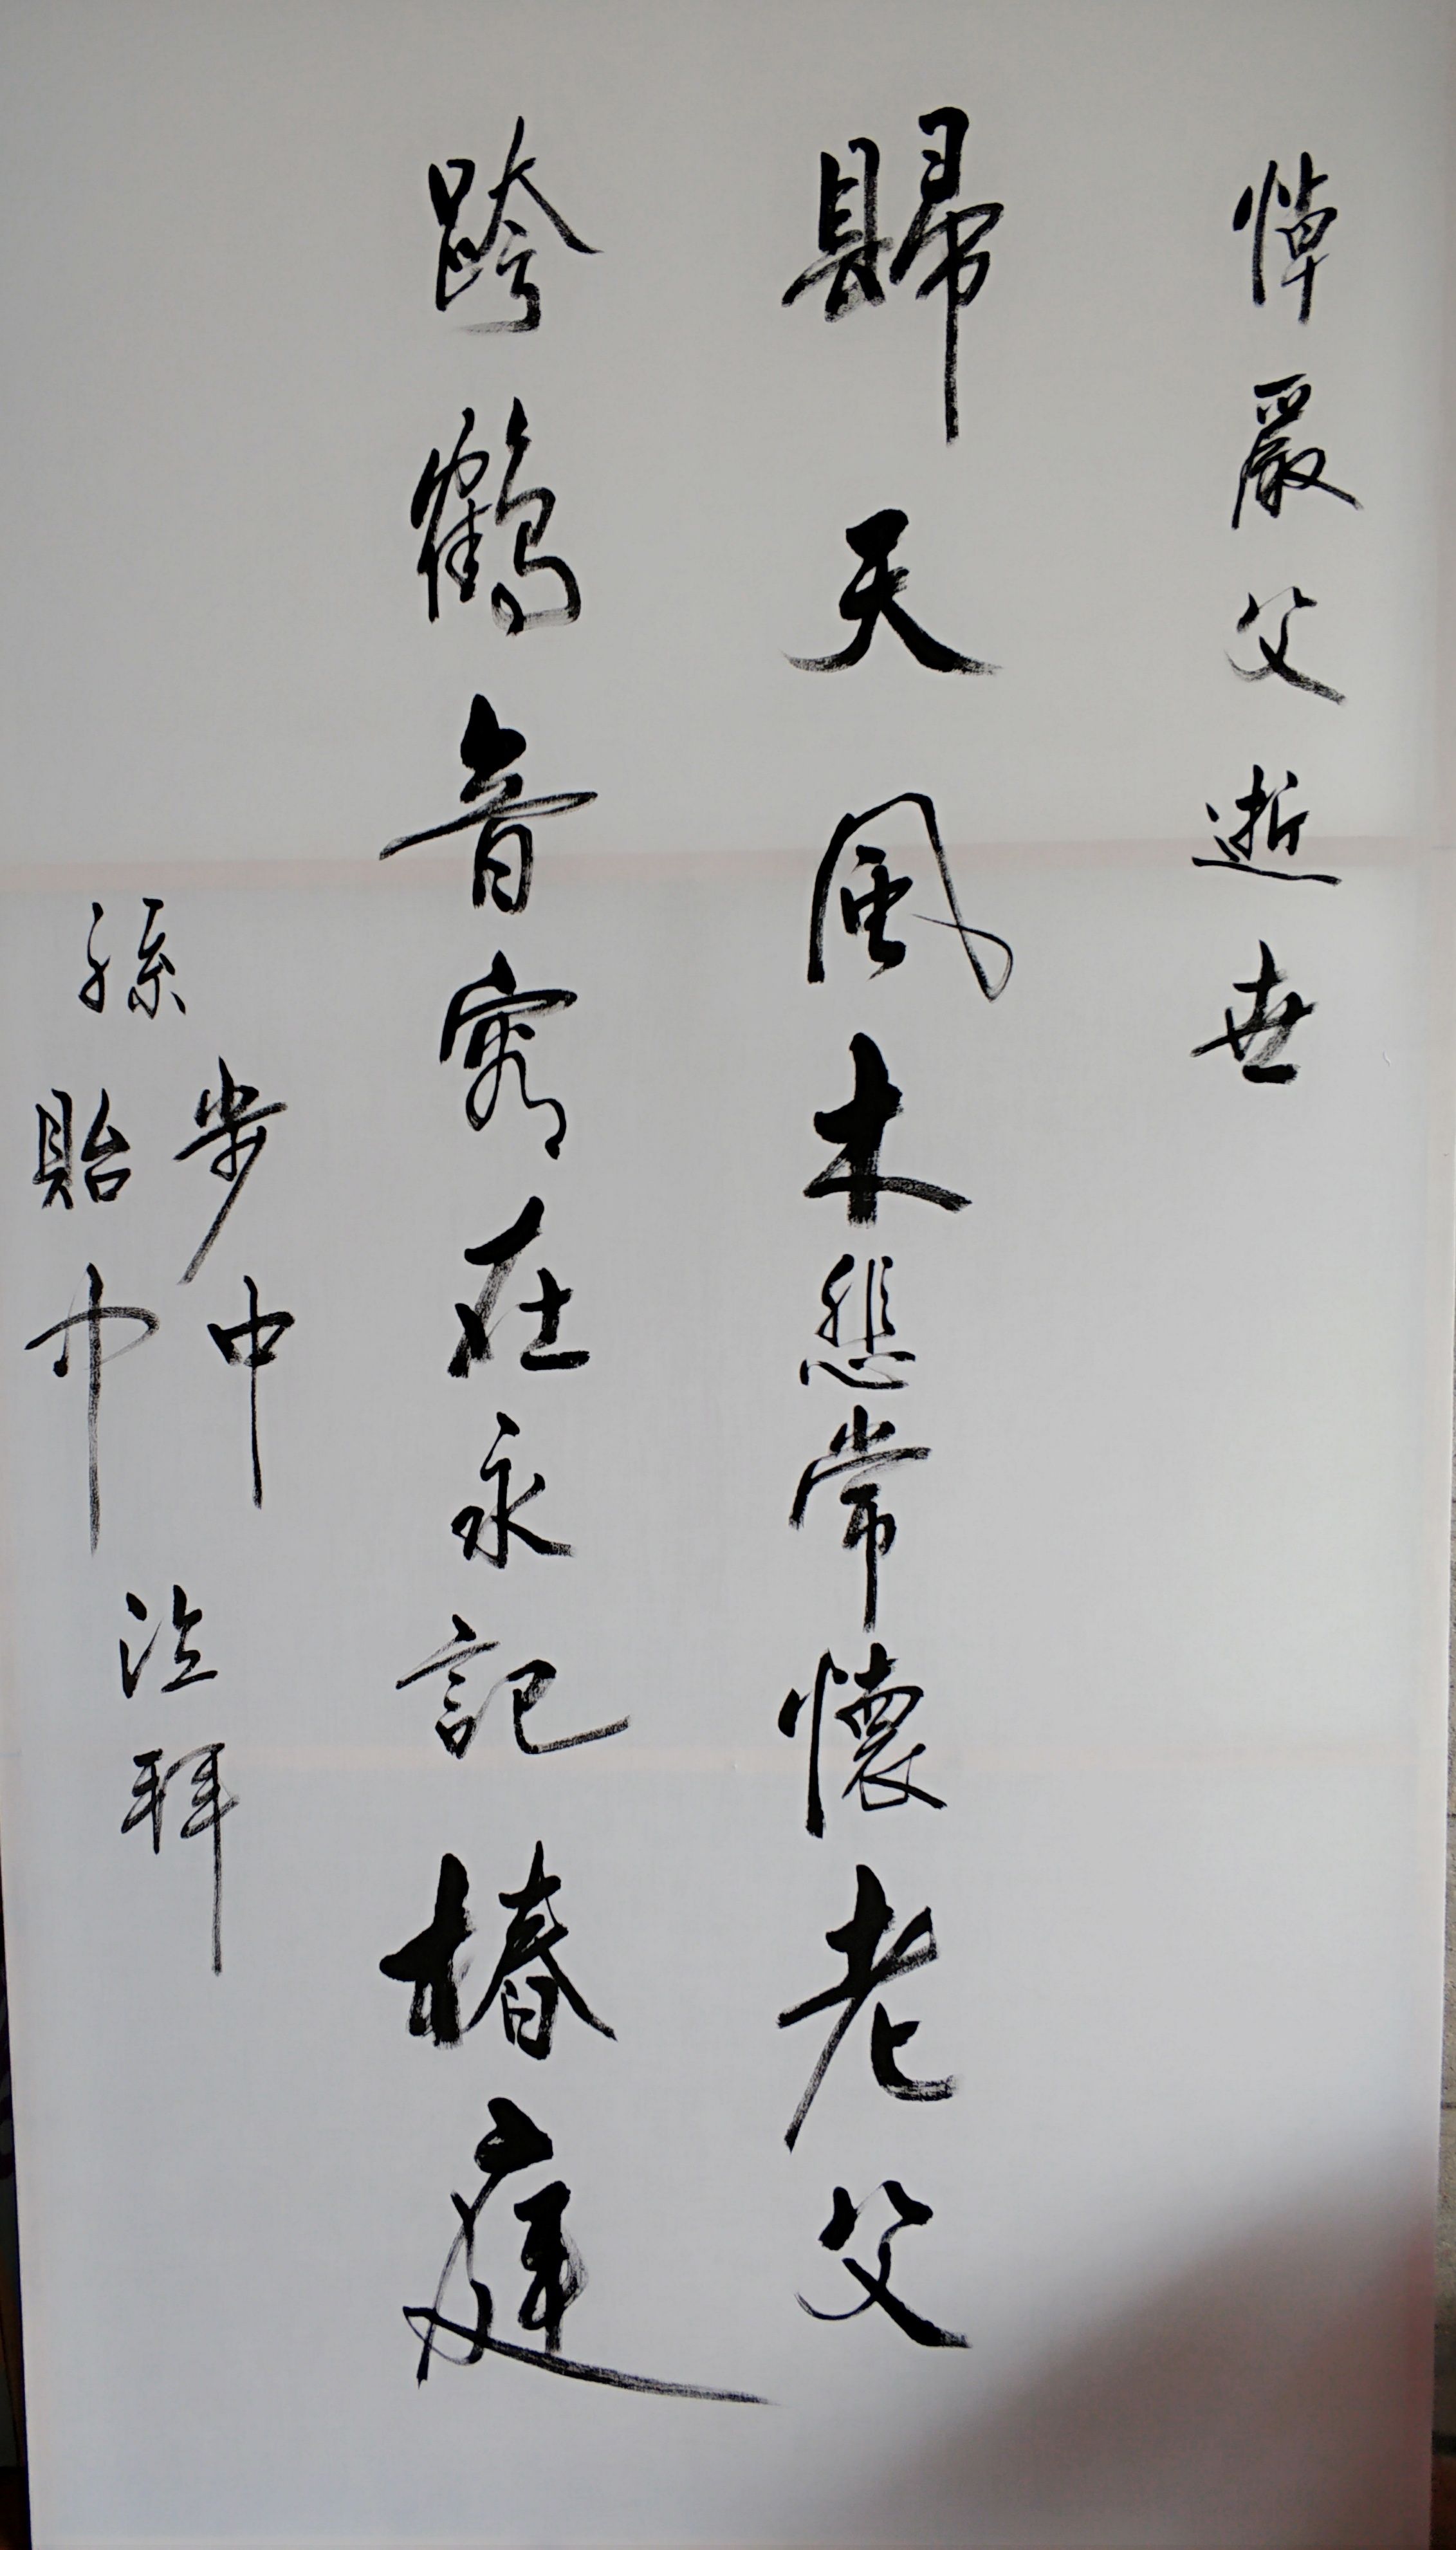 悼嚴父逝世
歸天風木悲常懷老父
跨鶴音容在永記椿庭
孫
步中
貽中
泣拜